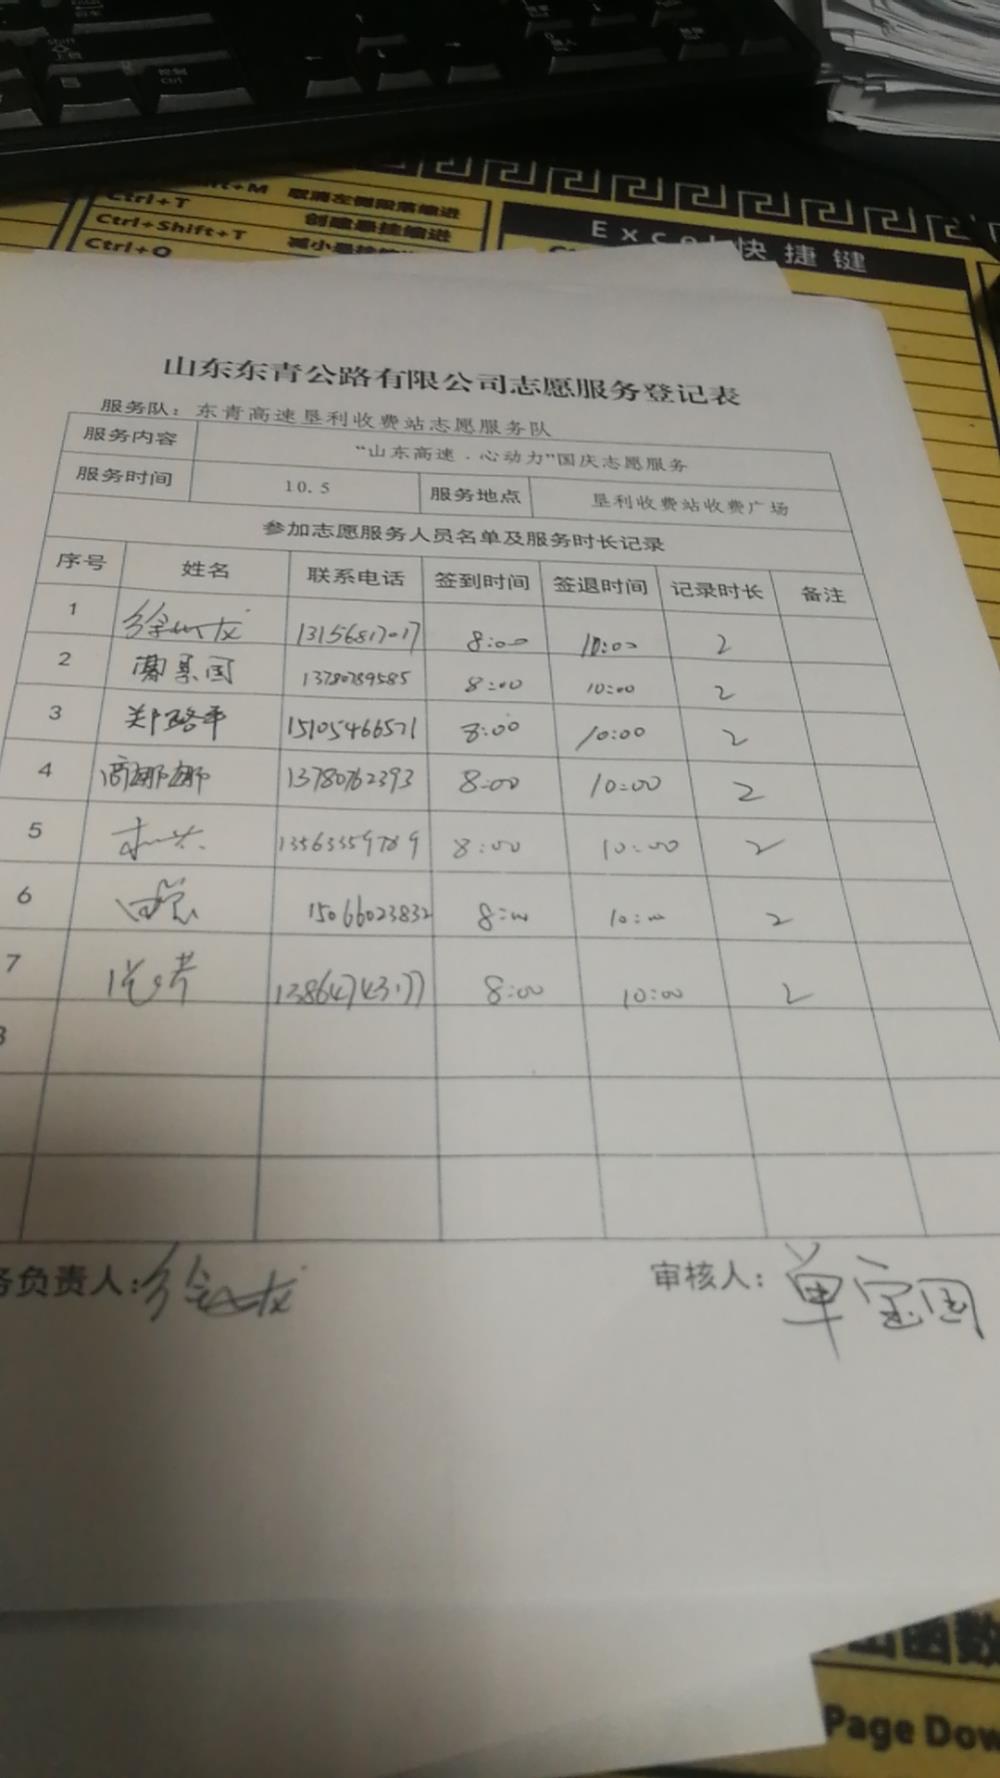 Ctrl+T 取消左侧段落缩进
Ctrl+Shift+T 创建悬挂缩进
Ctrl+Q
快捷键
山东东青公路有限公司志愿服务登记表
服务队：东青高速垦利收费站志愿服务队
服务内容 “山东高速．心动力”国庆志愿服务
服务时间 10.5 服务地点 垦利收费站收费广场
参加志愿服务人员名单及服务时长记录
序号 姓名 联系电话 签到时间 签退时间 记录时长 备注
1 13156817017 8:00 10:00 2
2 13780789585 8:00 10:00 2
3 郑路平 15105466571 8:00 10:00 2
4 商娜娜 13780762393 8:00 10:00 2
5 8:00 10:00 2
6 15066023832 8:00 10:00 2
7 8:00 10:00 2
负责人: 审核人: 单宝国
函数
Page Dow